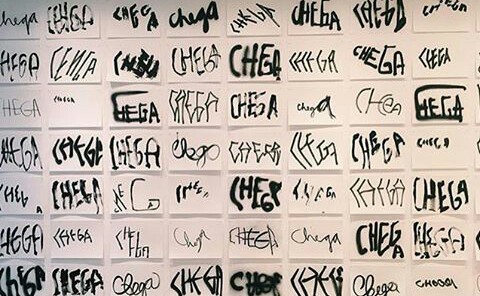 chega CHEGA CHEGA chega CHEGA CHEGA CHEGA
CHEGA CHEGA CHEGA CHEGA CHEGA CHEGA CHEGA
CHEGA CHEGA CHEGA CHEGA CHEGA chega Chega CHEGA
CHEGA CHEGA CHEGA Chega CHEGA CHEGA CHEGA CHEGA
CHEGA CHEGA CHEGA CHEGA CHEGA CHEGA
CHEGA CHEGA CHEGA Chega CHEGA Chega CHEGA CHEGA
CHEGA CHEGA Chega CHEGA CHEGA CHEGA Chega chega